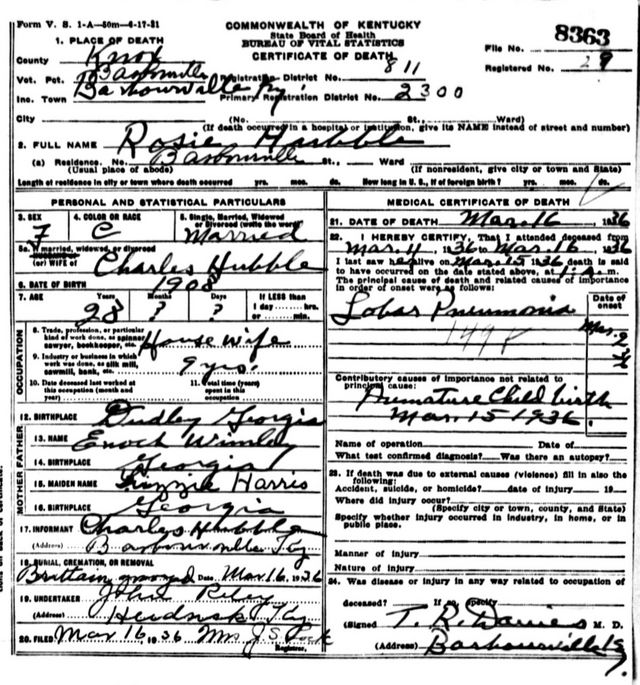 Form V. S. 1-A—50m—6-17-31
COMMONWEALTH OF KENTUCKY
State Board of Health
BUREAU OF VITAL STATISTICS
CERTIFICATE OF DEATH
8363
File No.
Registered No. 29
1. PLACE OF DEATH
County Knox
Vot. Pct. Barbourville
Registration District No. 811
Inc. Town Barbourville Ky.
Primary Registration District No. 2300
City (No. St., Ward)
(If death occurred in a hospital or institution, give its NAME instead of street and number)
2. FULL NAME Rosie Hubble
(a) Residence. No. Barbourville St., Ward
(Usual place of abode) (If nonresident, give city or town and State)
Length of residence in city or town where death occurred yrs. mos. ds. How long in U. S., if of foreign birth? yrs. mos. ds.
PERSONAL AND STATISTICAL PARTICULARS
3. SEX F
4. COLOR OR RACE C
5. Single, Married, Widowed or Divorced (write the word) Married
5a. If married, widowed, or divorced
HUSBAND of
(or) WIFE of Charles Hubble
6. DATE OF BIRTH 1908
7. AGE Years Months Days If LESS than
28 ? ? 1 day hrs.
or min.
OCCUPATION
8. Trade, profession, or particular
kind of work done, as spinner,
sawyer, bookkeeper, etc. House wife
9. Industry or business in which
work was done, as silk mill,
sawmill, bank, etc. 9 yrs.
10. Date deceased last worked at
this occupation (month and
year)
11. Total time (years)
spent in this
occupation
12. BIRTHPLACE Dudley Georgia
FATHER
13. NAME Enoch Wimley
14. BIRTHPLACE Georgia
MOTHER
15. MAIDEN NAME Harris
16. BIRTHPLACE Georgia
17. INFORMANT Charles Hubble
(Address) Barbourville Ky
18. BURIAL, CREMATION, OR REMOVAL
Brittain graveyard Date Mar 16 1936
19. UNDERTAKER Riley
(Address) Ky
20. FILED Mar 16 1936 Mrs J S
Registrar.
MEDICAL CERTIFICATE OF DEATH
21. DATE OF DEATH Mar. 16 1936
22. I HEREBY CERTIFY, That I attended deceased from
Mar. 11 1936 to Mar. 16, 1936
I last saw her alive on Mar. 15 1936 death is said
to have occurred on the date stated above, at 1 a.m.
The principal cause of death and related causes of importance
in order of onset were as follows:
Date of onset
Lobar Pneumonia Mar.
Contributory causes of importance not related to
principal cause:
Premature Child birth
Mar. 15 1936
Name of operation Date of
What test confirmed diagnosis? Was there an autopsy?
23. If death was due to external causes (violence) fill in also the
following:
Accident, suicide, or homicide? date of injury 19
Where did injury occur?
(Specify city or town, county, and State)
Specify whether injury occurred in industry, in home, or in
public place.
Manner of injury
Nature of injury
24. Was disease or injury in any way related to occupation of
deceased? If so, specify
(Signed T. R. Davies M. D.
(Address) Barbourville Ky